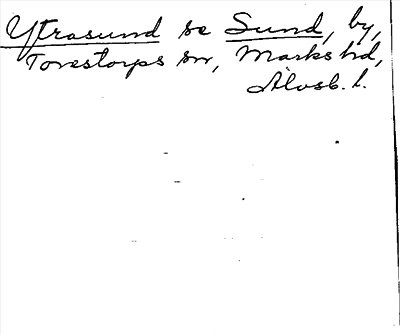 Ytrasund se Sund, by,
Torestorps sn, Marks hd,
Älvsb. l.